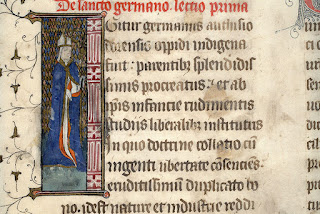 De sancto germano. lectio prima
Gitur germanus authisio
dorensis oppidi indigena
fuit: parentibus splendidis
simis procreatus: et ab
ipsis infancie rudimentis
studiis liberalibus institutus
In quo doctrine collatio cu
ingenti libertate cosencies:
eruditissimu duplicato bo
no. idest nature et industrie reddi